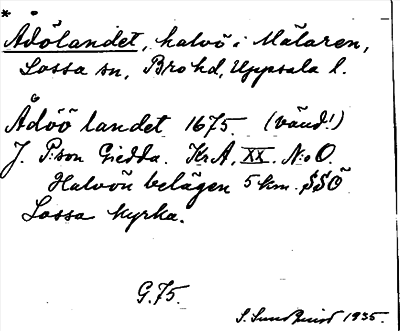 *
Ådölandet, halvö i Mälaren,
Lossa sn, Bro hd, Uppsala l.
Ådöö landet 1675. (vänd!)
J. P:son Giedda. KrA, XX. N:o 0.
Halvön belägen 5 km. SSÖ
Lossa kyrka.
G.75.
S. Sundquist 1935.